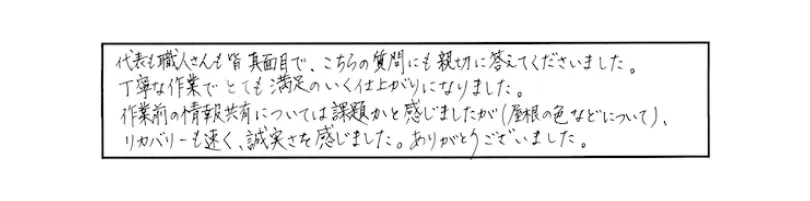 代表も職人さんも皆真面目で、こちらの質問にも親切に答えてくださいました。
丁寧な作業でとても満足のいく仕上がりになりました。
作業前の情報共有については課題かと感じましたが(屋根の色などについて)、
リカバリーも速く、誠実さを感じました。ありがとうございました。